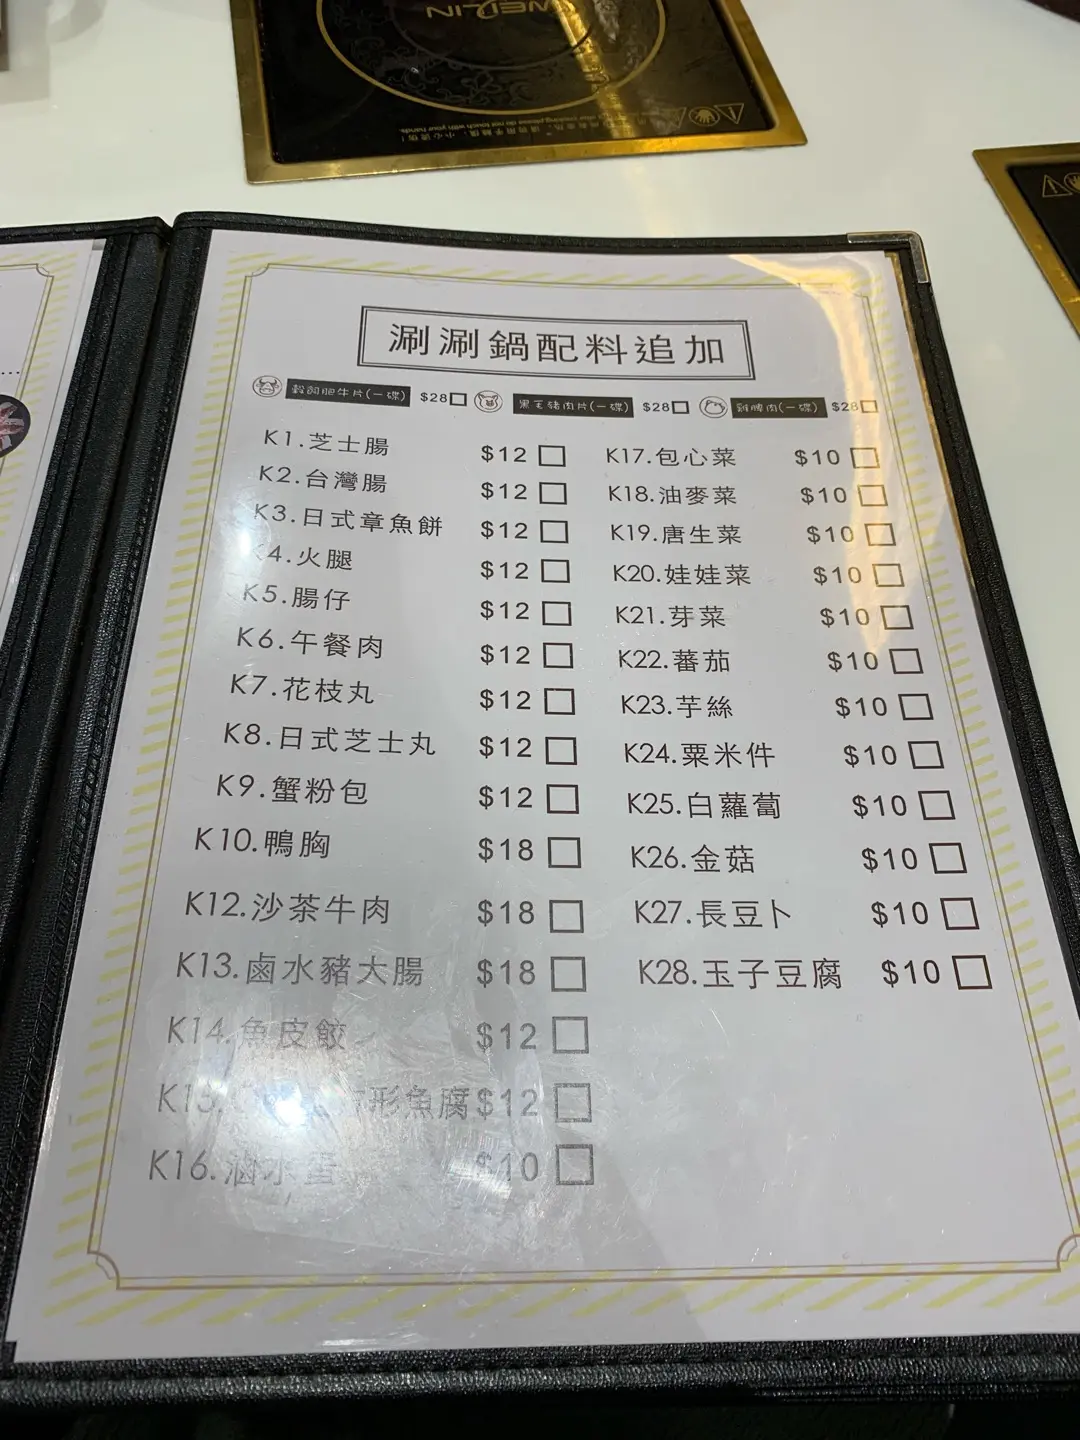 WEILIN
涮涮鍋配料追加
穀飼肥牛片(一碟) $28 黑毛豬肉片(一碟) $28 雞脾肉(一碟) $28
K1.芝士腸 $12
K2.台灣腸 $12
K3.日式章魚餅 $12
4.火腿 $12
K5.腸仔 $12
K6.午餐肉 $12
K7.花枝丸 $12
K8.日式芝士丸 $12
K9.蟹粉包 $12
K10.鴨胸 $18
K12.沙茶牛肉 $18
K13.鹵水豬大腸 $18
K14.魚皮餃 $12
K15. 形魚腐 $12
K16.滷水蛋 $10
K17.包心菜 $10
K18.油麥菜 $10
K19.唐生菜 $10
K20.娃娃菜 $10
K21.芽菜 $10
K22.蕃茄 $10
K23.芋絲 $10
K24.粟米件 $10
K25.白蘿蔔 $10
K26.金菇 $10
K27.長豆卜 $10
K28.玉子豆腐 $10